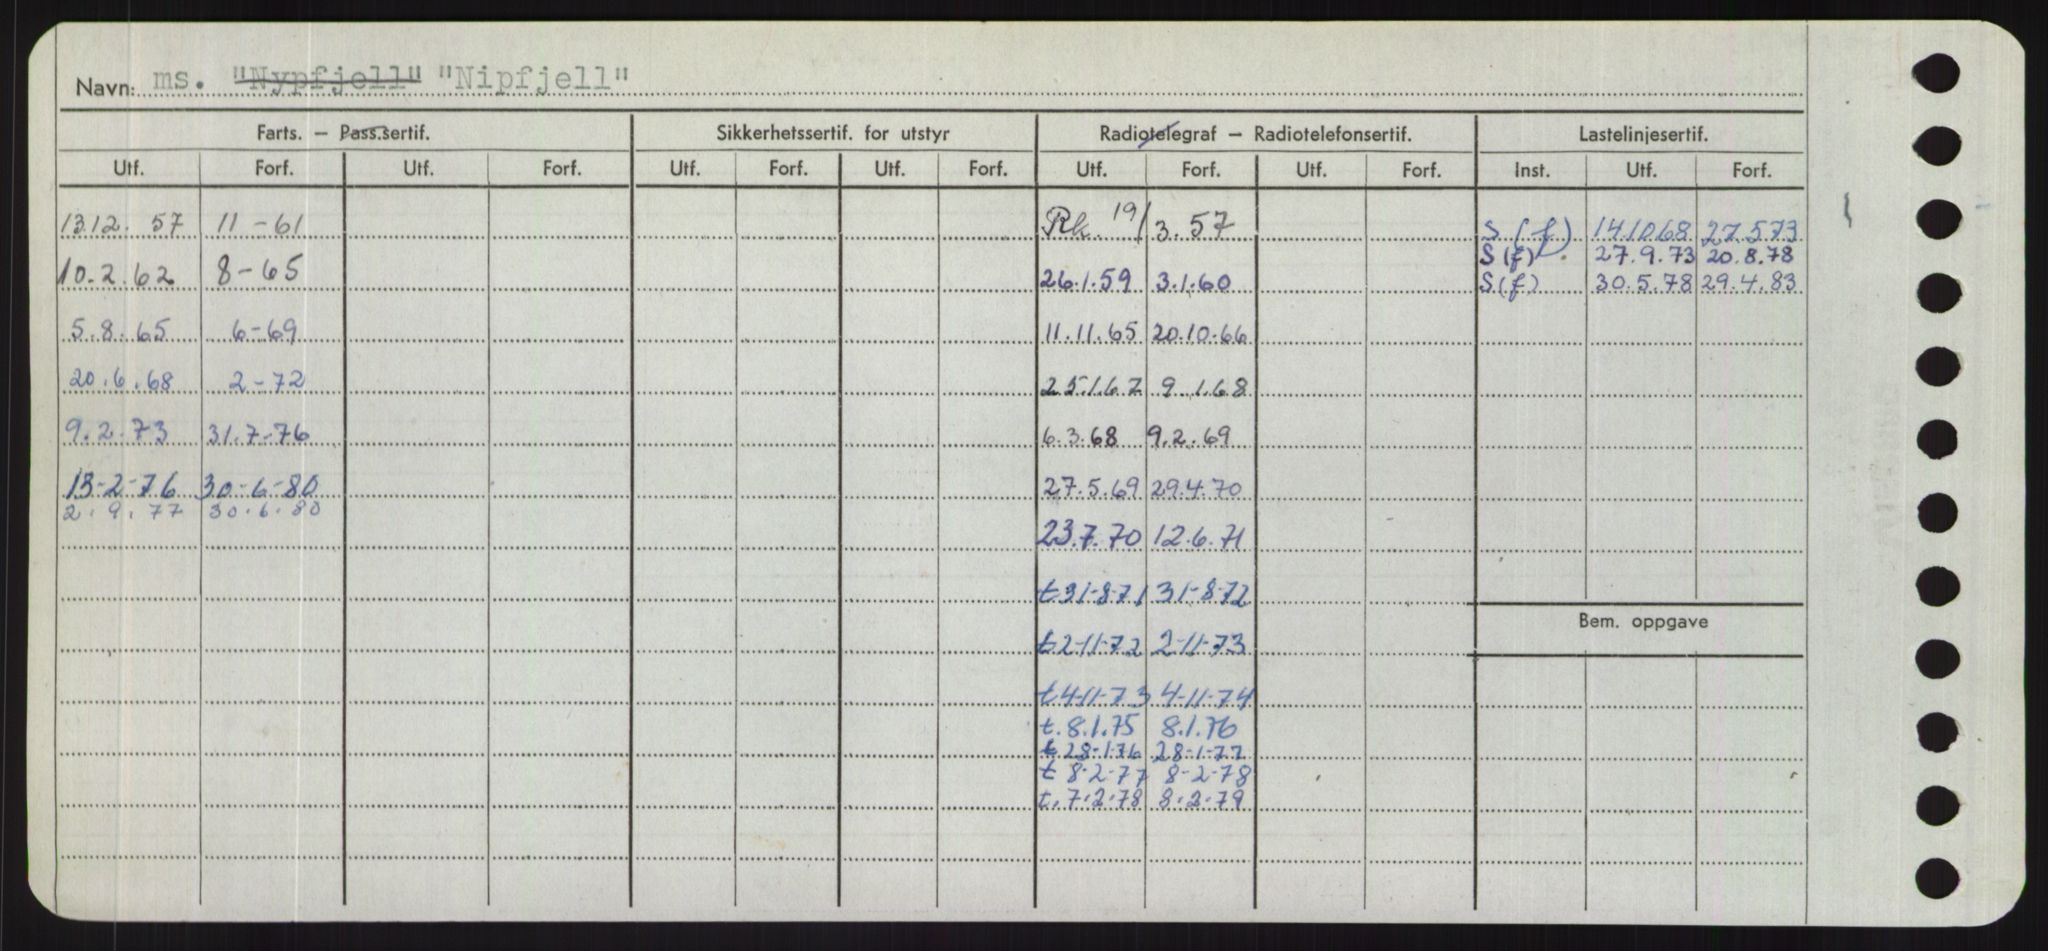 Navn: ms. "Nypfjell" "Nipfjell"
Farts. — Pass.sertif. Sikkerhetssertif. for utstyr Radiotelegraf — Radiotelefonsertif. Lastelinjesertif.
Utf. Forf. Utf. Forf. Utf. Forf. Utf. Forf. Utf. Forf. Utf. Forf. Inst. Utf. Forf.
13.12. 57 11-61 Rk. 19/3.57 S (f) 14.10.68 27.5.73
S (f). 27.9.73 20.8.78
10.2.62 8-65 26.1.59 3.1.60 S (f) 30.5.78 29.4.83
5.8.65 6-69 11.11.65 20.10.66
20.6.68 2-72 25.1.67 9.1.68
9.2.73 31.7-76 6.3.68 9.2.69
13-2-76 30-6-80 27.5.69 29.4.70
2.9.77 30.6.80
23.7.70 12.6.71
t 31-8-71 31-8-72
Bem. oppgave
t 2-11-72 2-11-73
t 4-11-73 4-11-74
t. 8.1.75 8.1.76
t. 28-1-76 28-1-77
t 8-2-77 8-2-78
t. 7.2.78 8.2.79